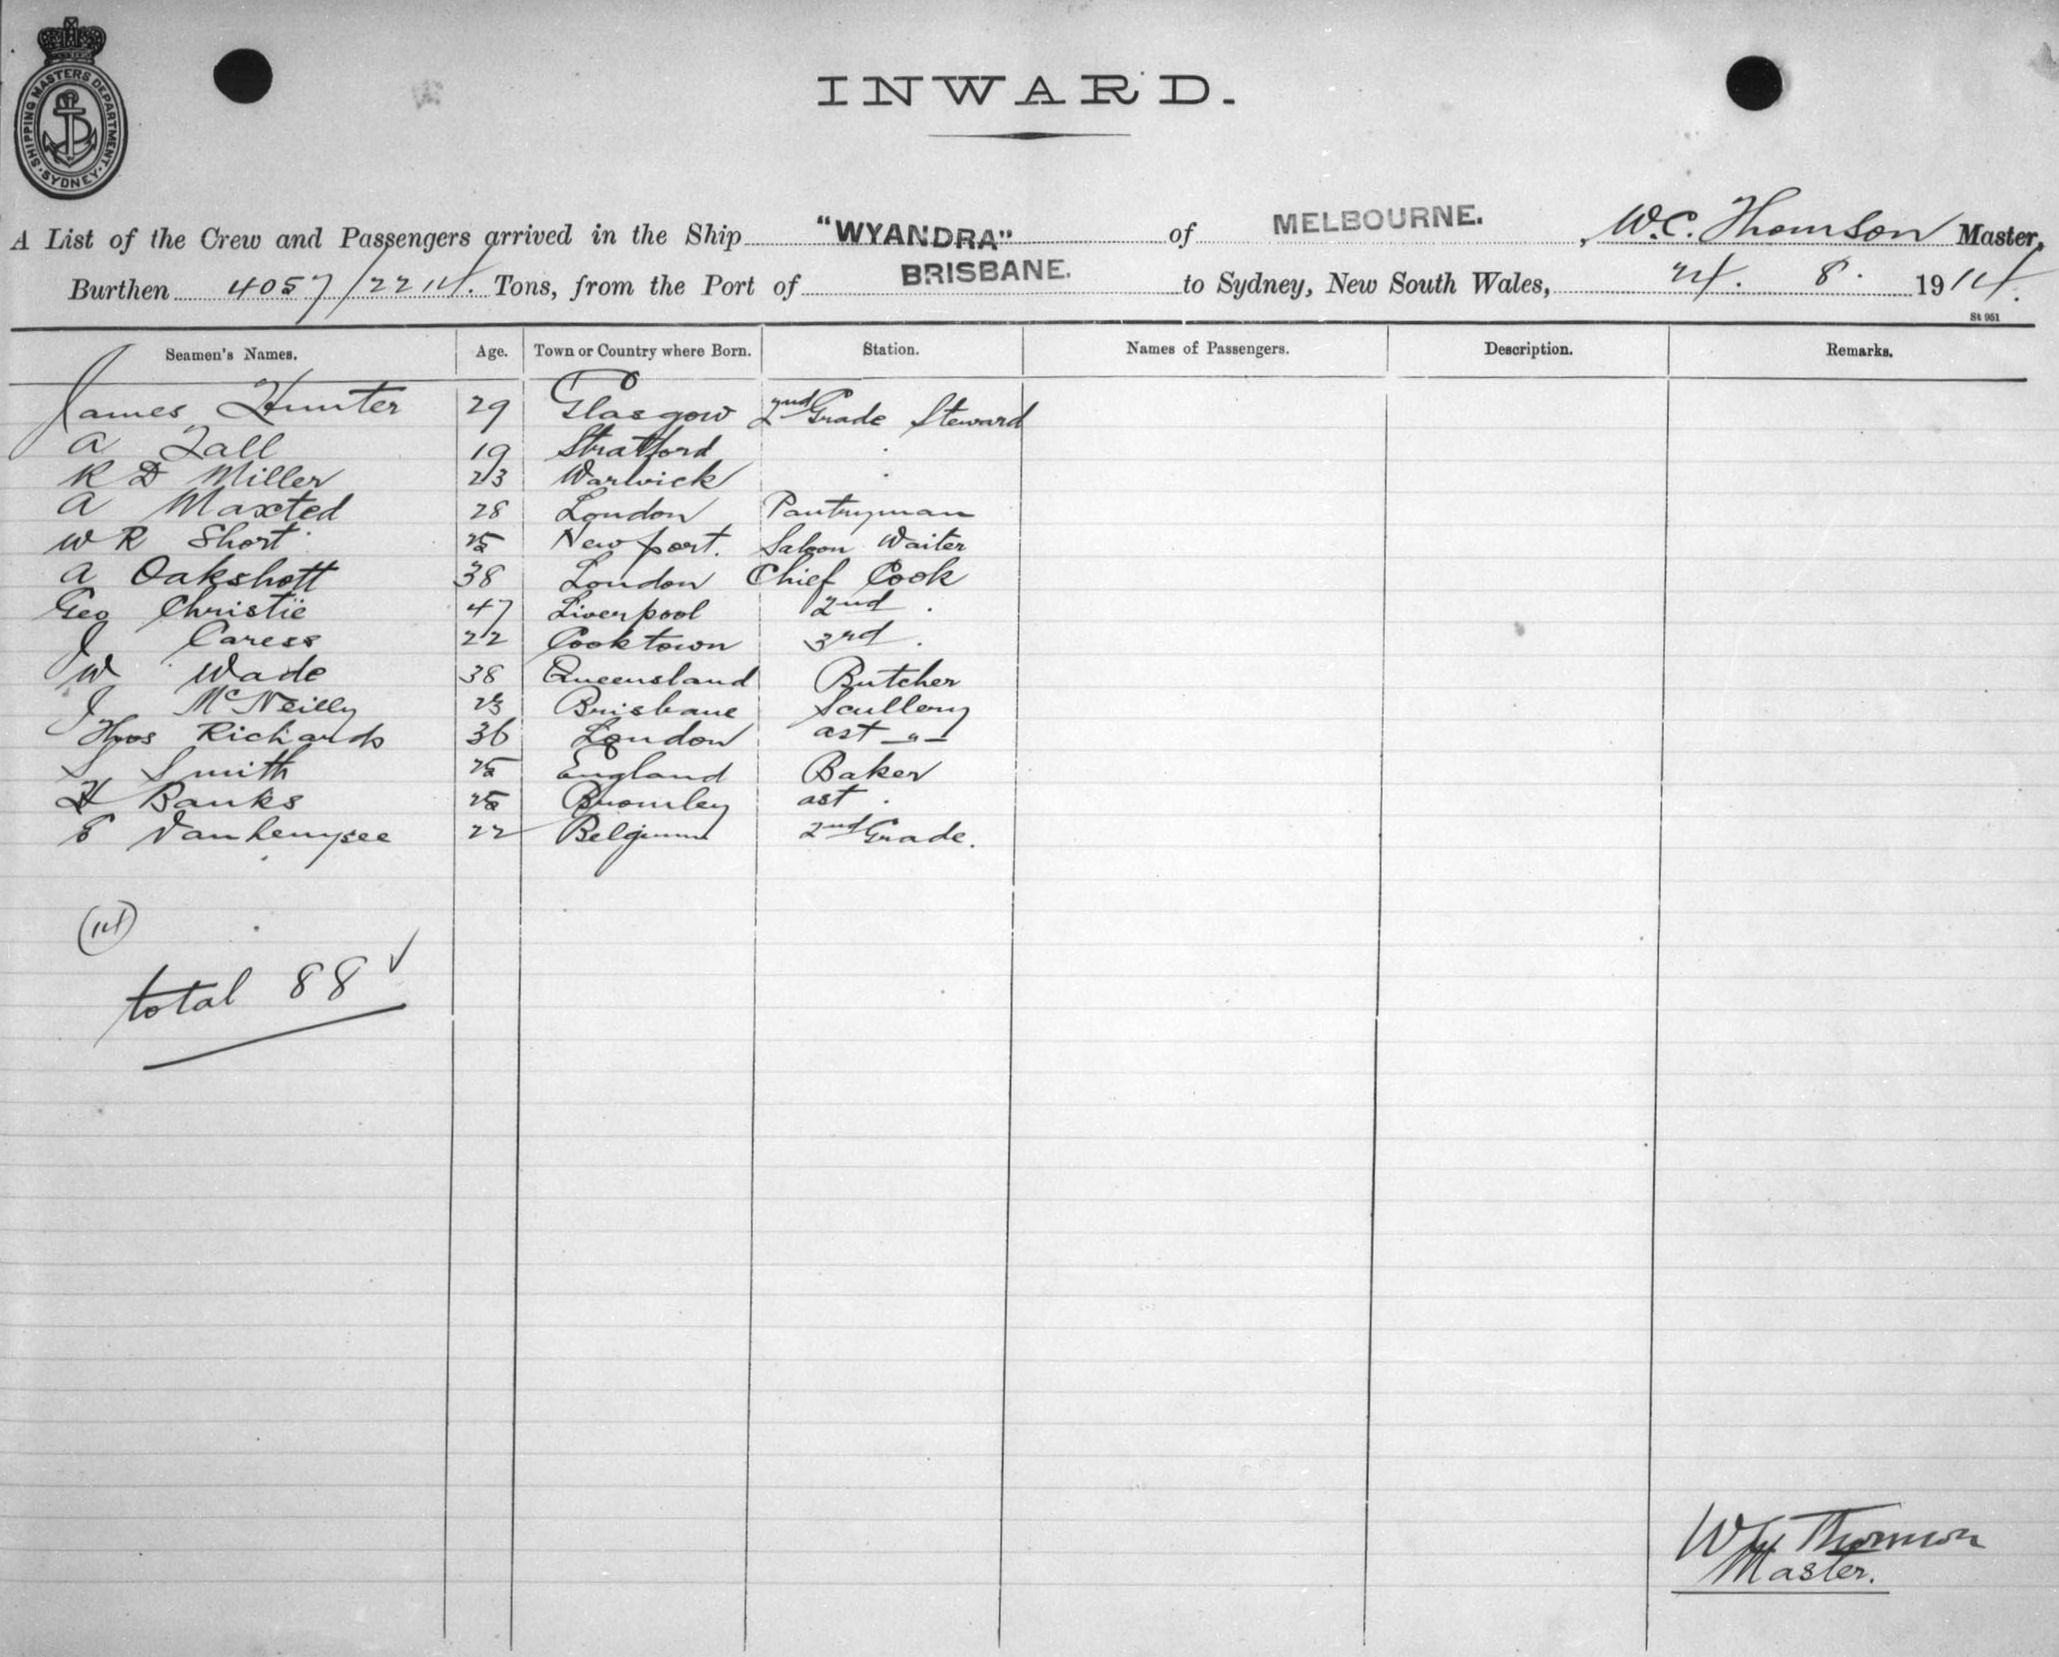 SHIPPING MASTERS DEPARTMENT. SYDNEY.
INWARD.
A List of the Crew and Passengers arrived in the Ship "WYANDRA" of MELBOURNE. , W.C. Thomson Master,
Burthen 4057/2214. Tons, from the Port of BRISBANE. to Sydney, New South Wales, 24. 8. 1914.
St 951
Seamen's Names. Age. Town or Country where Born. Station. Names of Passengers. Description. Remarks.
James Hunter 29 Glasgow 2nd Grade Steward
A 19 Stratford
R D Miller 23 Warwick
A Maxted 28 London Pantryman
W R Short 25 Newport. Saloon Waiter
A Oakshott 38 London Chief Cook
Geo Christie 47 Liverpool 2nd .
J Caress 22 Cooktown 3rd .
W Wade 38 Queensland Butcher
J McNeilly 23 Brisbane Scullery
Thos Richards 36 London ast -"-
S Smith 25 England Baker
H Banks 25 Bromley ast .
22 Belgium 2nd Grade.
(14)
total 88 ✓
W C Thomson
Master.